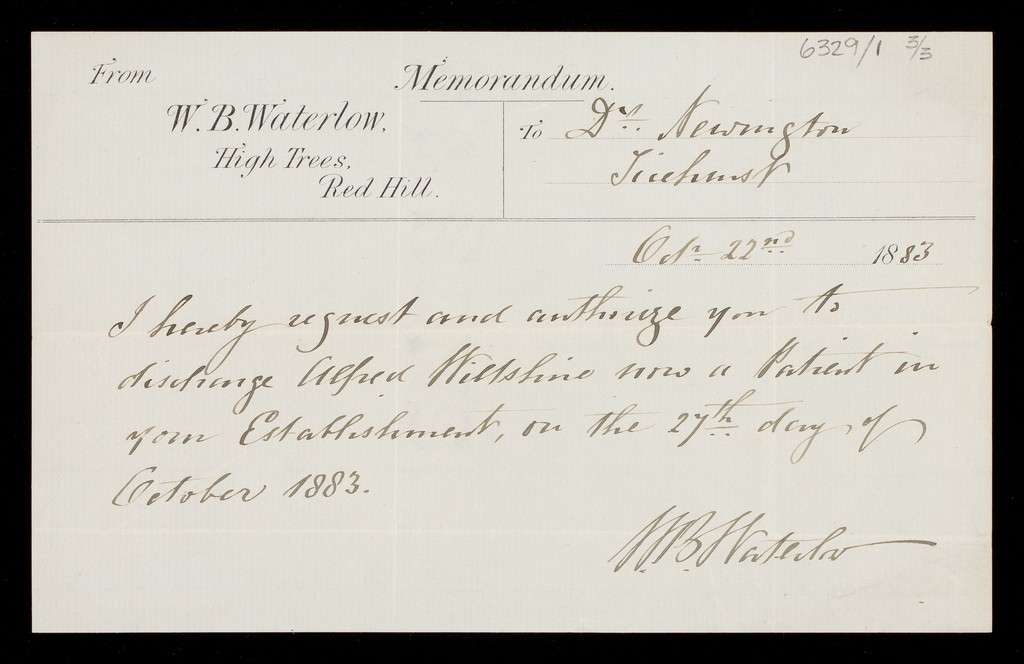 6329/1 3/3
From
Memorandum.
W. B. Waterlow,
High Trees,
Red Hill.
To Drs. Newington
Ticehurst
Octr. 22nd 1883
I hereby request and authorize you to
discharge Alfred Wiltshire now a Patient in
your Establishment, on the 27th day of
October 1883.
W. B. Waterlow